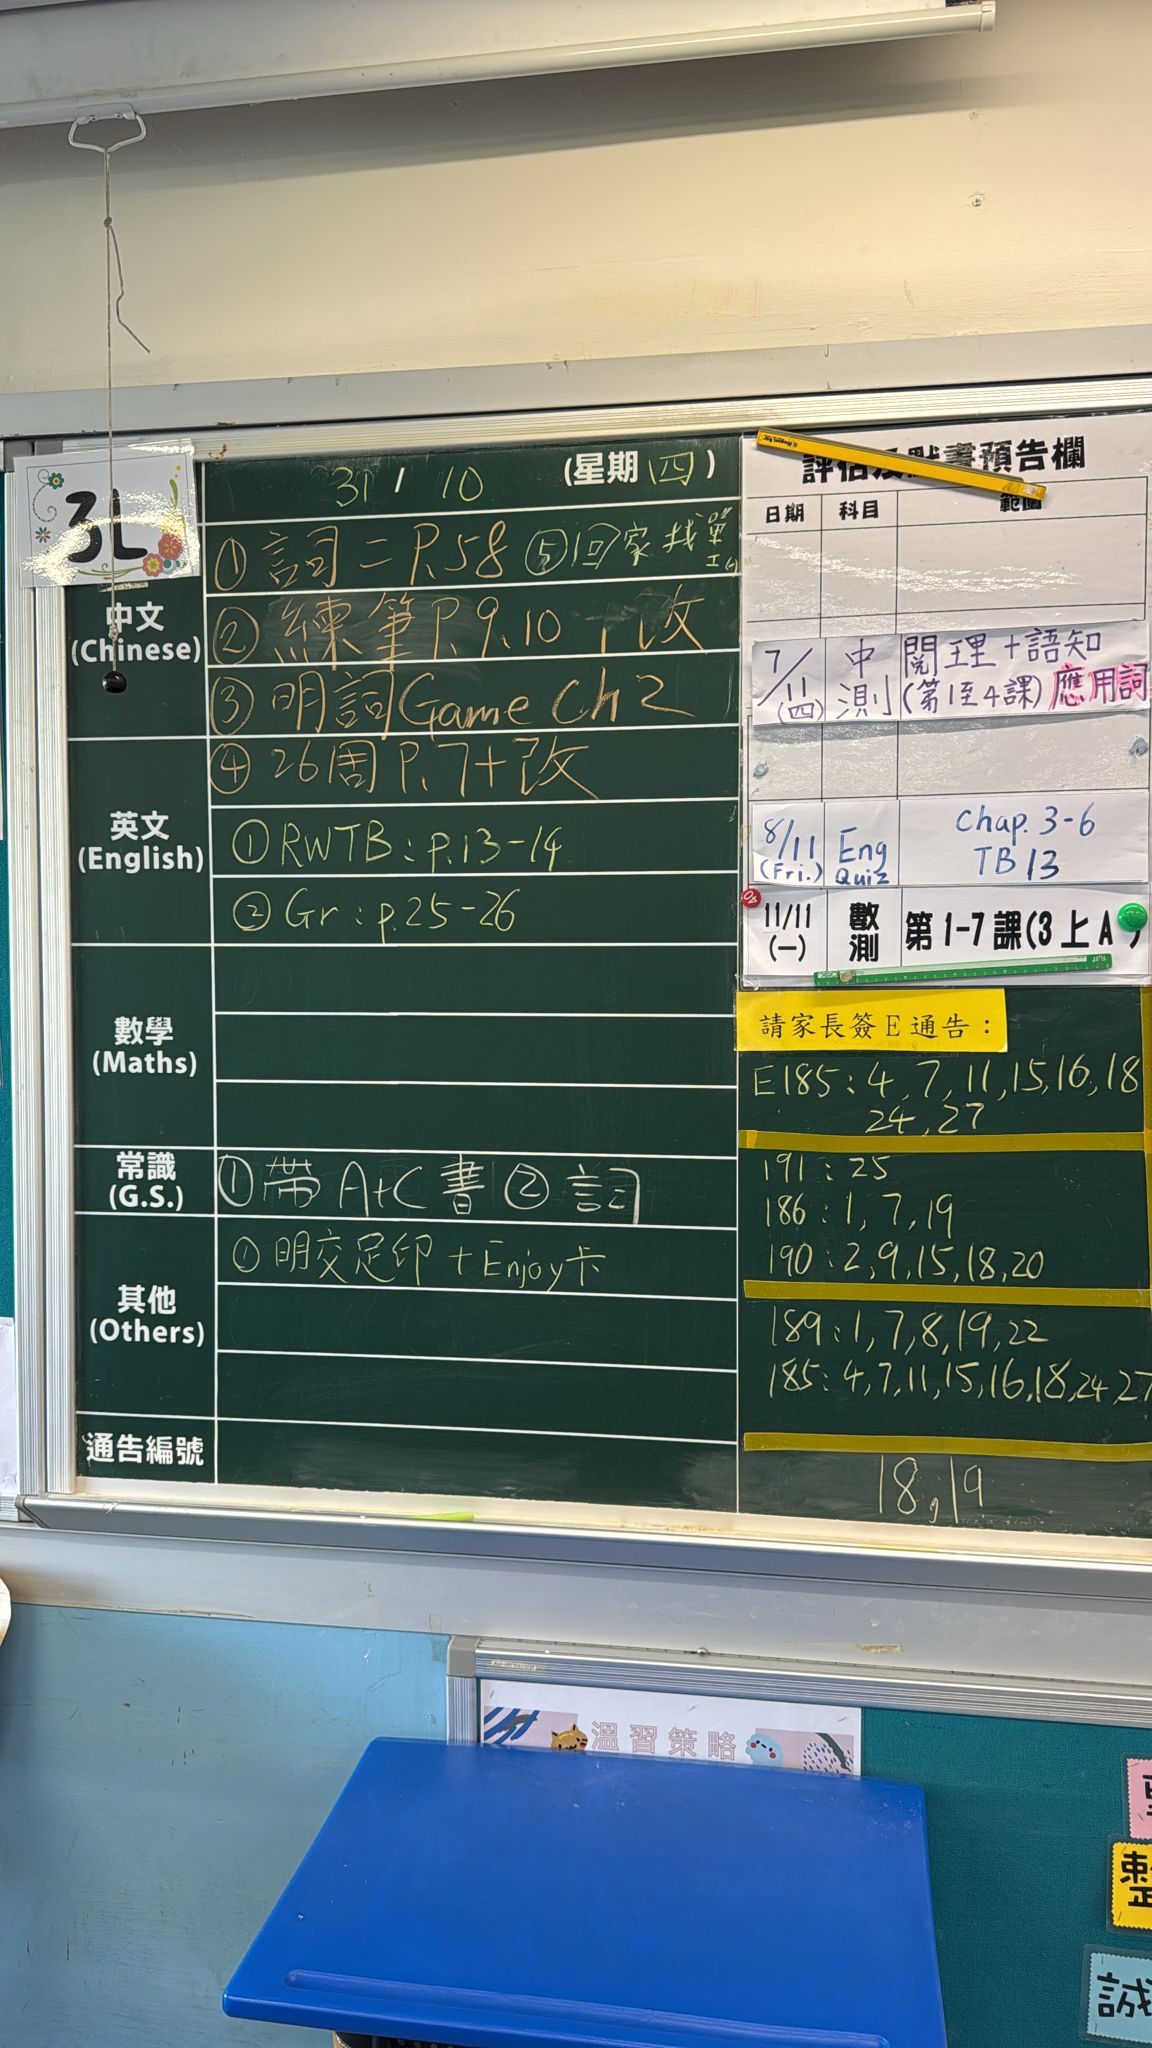 3L
31 / 10 (星期四)
中文
(Chinese)
① 詞二 P.58 ⑤回家找單
② 練筆P.9,10 + 改
③ 明詞Game Ch 2
④ 26周 P.7+改
英文
(English)
① RWTB : p.13-14
② Gr : p.25-26
數學
(Maths)
常識
(G.S.)
① 帶 A+C 書 ② 詞
其他
(Others)
① 明交足印 + Enjoy卡
通告編號
評估及默書預告欄
日期 科目 範圍
7/11 (四) 中測 閱理+語知
(第1至4課) 應用詞
8/11 (Fri.) Eng Quiz Chap. 3-6
TB 13
11/11 (一) 數測 第1-7課(3上A)
請家長簽E通告：
E185 : 4, 7, 11, 15, 16, 18
24, 27
191 : 25
186 : 1, 7, 19
190 : 2, 9, 15, 18, 20
189 : 1, 7, 8, 19, 22
185 : 4, 7, 11, 15, 16, 18, 24, 27
18, 19
溫習策略
整
誠